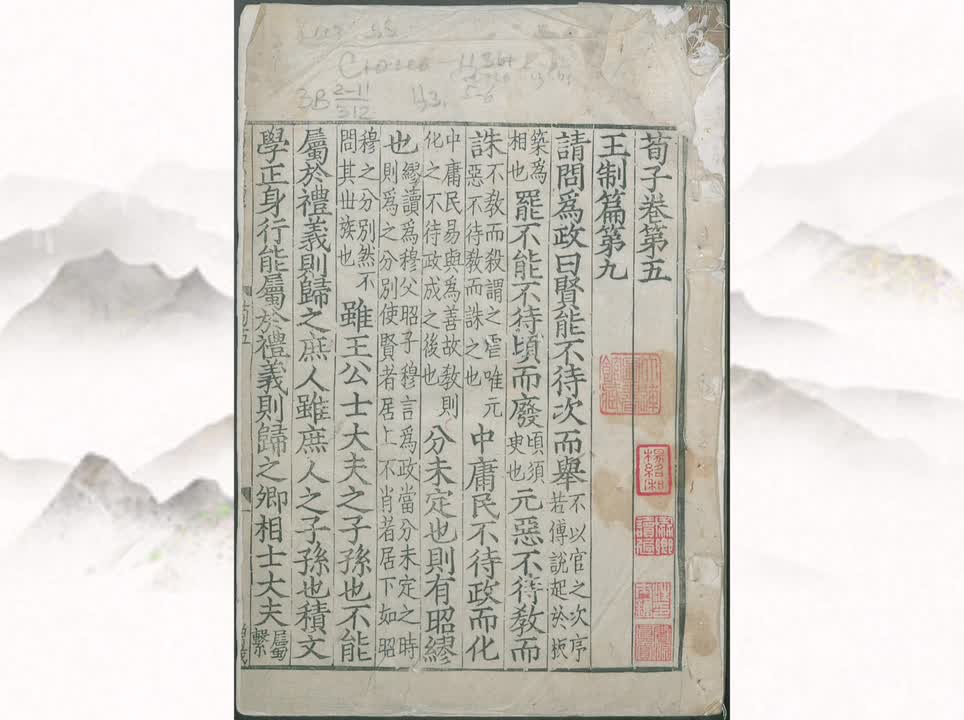 荀子卷第五
王制篇第九
請問為政曰賢能不待次而舉不以官之次序若傅說起於板
築為相也罷不能不待頃而廢頃須臾也元惡不待敎而
誅不敎而殺謂之虐唯元惡不待敎而誅之也中庸民不待政而化
中庸民易與為善故敎則化之不待政成之後也分未定也則有昭繆
也繆讀為穆父昭子穆言為政當分未定之時則為之分別使賢者居上不肖者居下如昭
穆之分別然不問其世族也雖王公士大夫之子孫也不能
屬於禮義則歸之庶人雖庶人之子孫也積文
學正身行能屬於禮義則歸之卿相士大夫屬繫
楊紹和
3B 2-11
312